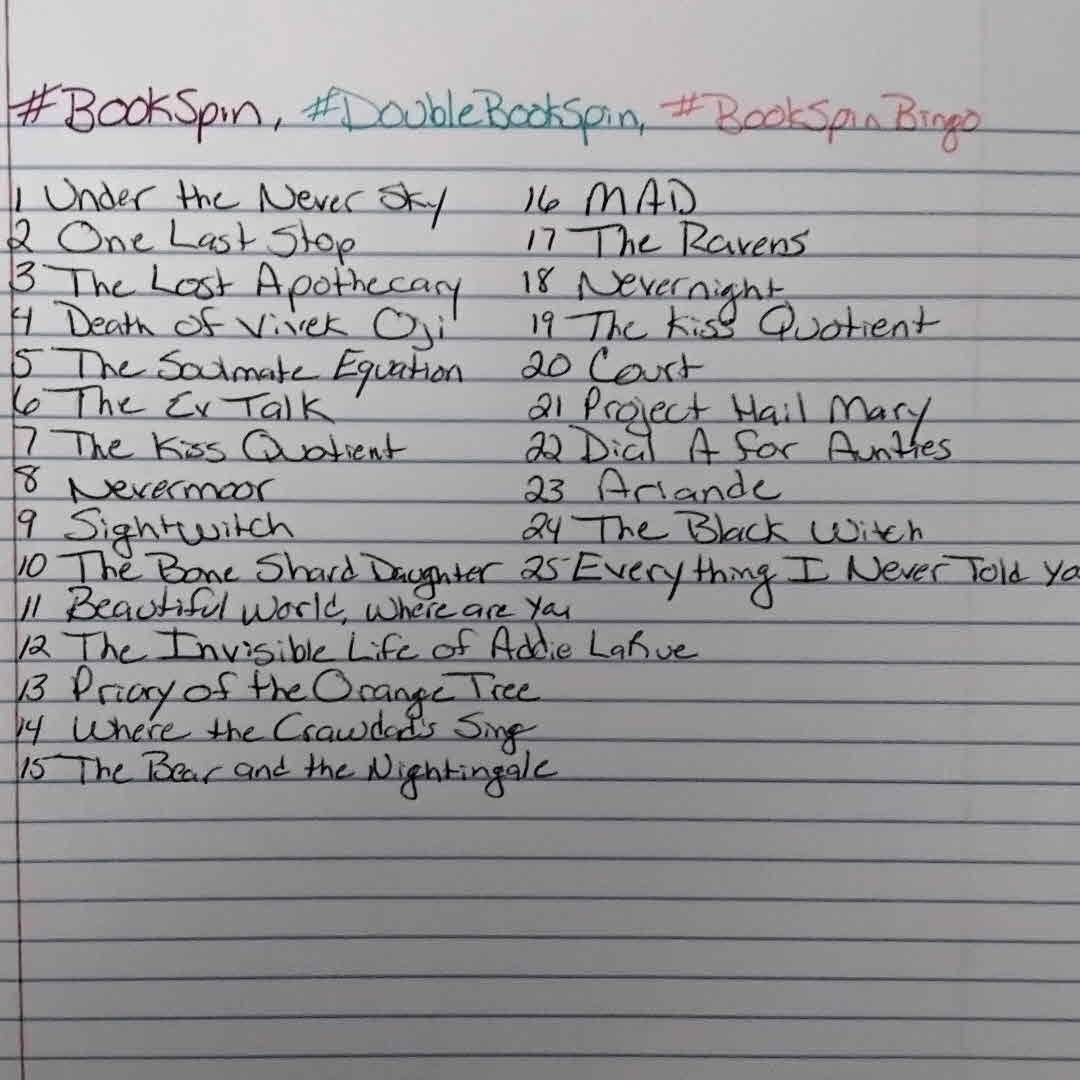 #BookSpin, #DoubleBookSpin, #BookSpinBingo
1 Under the Never Sky
2 One Last Stop
3 The Lost Apothecary
4 Death of Vivek Oji
5 The Soulmate Equation
6 The Ex Talk
7 The Kiss Quotient
8 Nevermoor
9 Sightwitch
10 The Bone Shard Daughter
11 Beautiful World, Where are You
12 The Invisible Life of Addie LaRue
13 Priory of the Orange Tree
14 Where the Crawdad's Sing
15 The Bear and the Nightingale
16 MAD
17 The Ravens
18 Nevernight
19 The Kiss Quotient
20 Court
21 Project Hail Mary
22 Dial A for Aunties
23 Ariande
24 The Black Witch
25 Everything I Never Told Yo